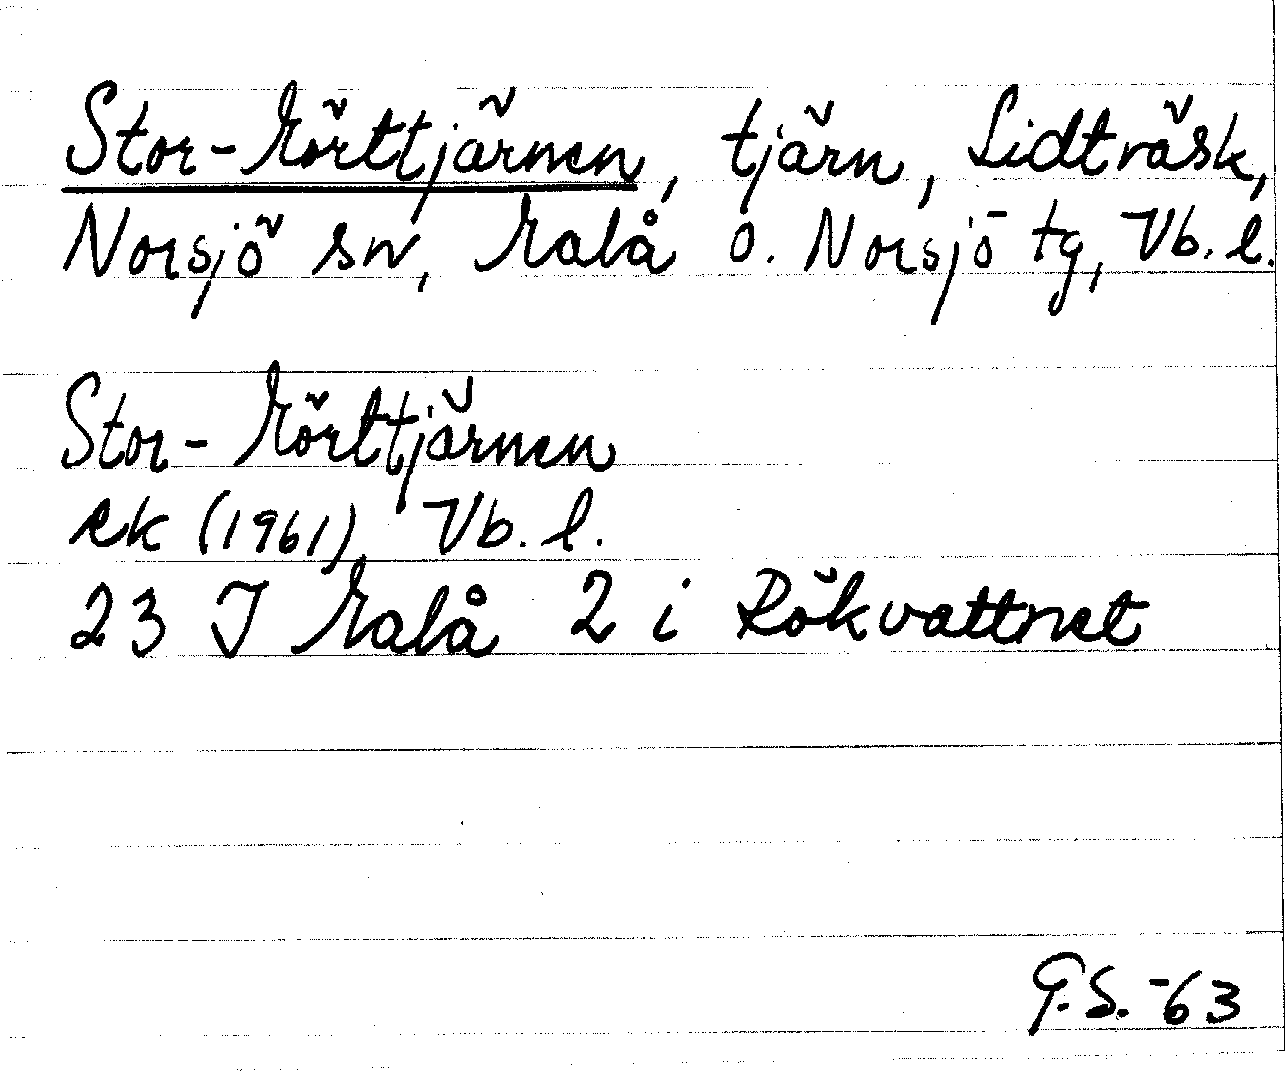 Stor-Mörttjärnen, tjärn, Lidträsk,
Norsjö sn, Malå o. Norsjö tg, Vb. l.
Stor-Mörttjärnen
ek (1961) Vb. l.
23 J Malå 2 i Rökvattnet
G.S. -63